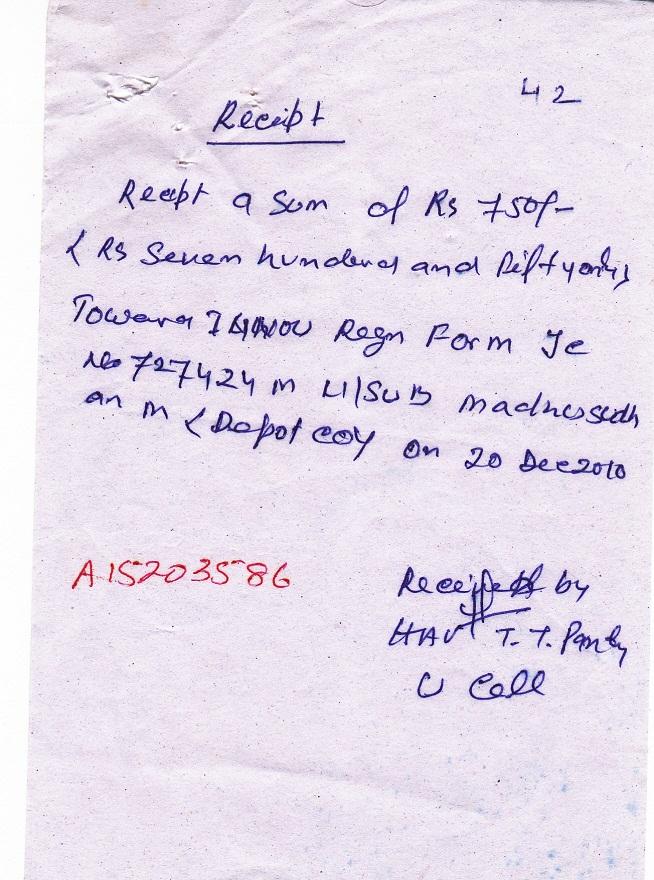 42
Receipt
Recept a sum of Rs 750/-
( Rs Seven hundered and fifty only)
Toward IGNOU Regn Form Jc
No 727424 M L/SUB
an M ( Depot coy on 20 Dec 2010
A152035586
Received by
HAV T. T. Pandy
U Cell